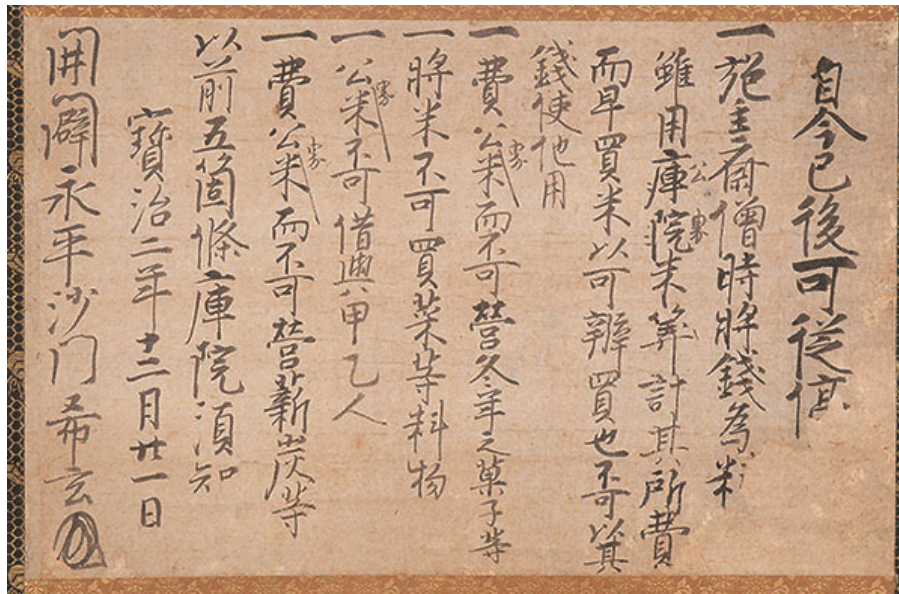 自今已後可從停
一施主斎僧時將錢為料
雖用庫院公界米算計其所費
而早買米以可辦買也不可以其
錢使他用
一費公界米而不可營冬年之菓子等
一將米不可買菜等料物
一公界米不可借與甲乙人
一費公界米而不可營薪炭等
以前五箇條庫院須知
寶治二年十二月廿一日
開闢永平沙门希玄